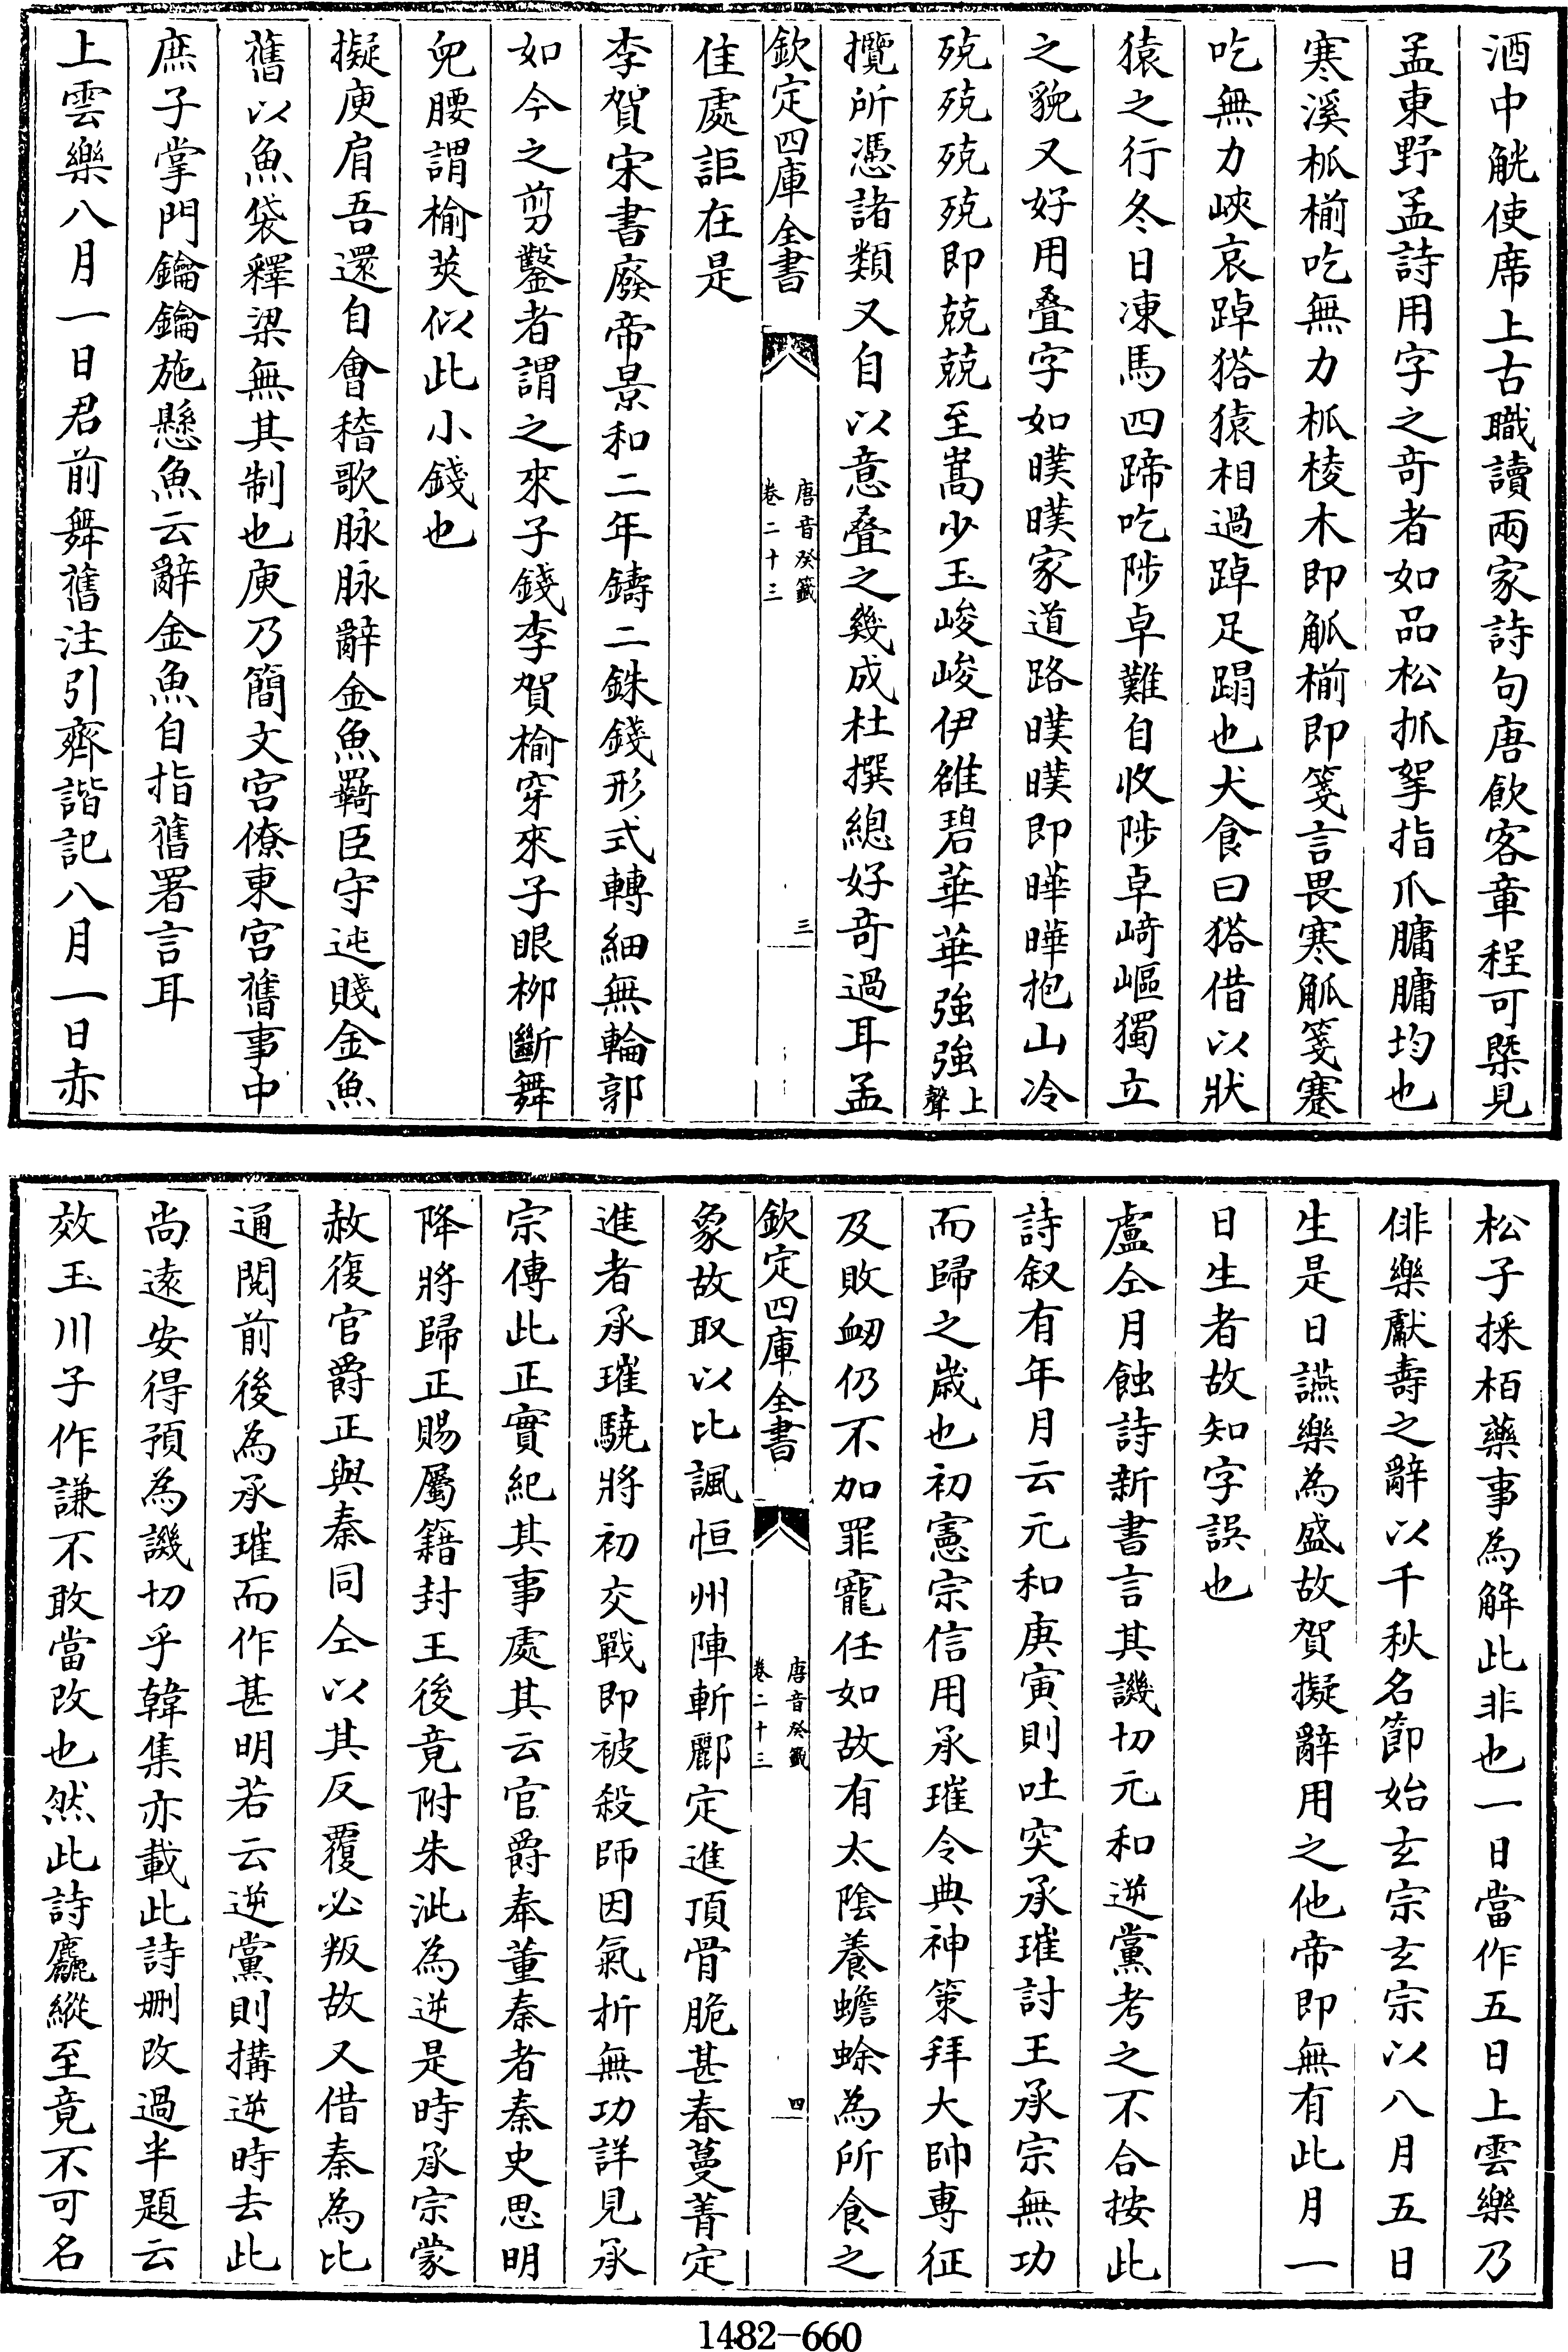 酒中觥使席上古職讀兩家詩句唐飲客章程可槩見
孟東野孟詩用字之竒者如品松抓拏指爪㬅㬅均也
寒溪柧椾吃無力柧棱木即觚椾即箋言畏寒觚箋蹇
吃無力峽哀踔㺚猿相過踔足蹋也犬食曰㺚借以狀
猿之行冬日凍馬四蹄吃陟卓難自收陟卓﨑嶇獨立
之貌又好用叠字如㬥㬥家道路㬥㬥即曄曄抱山冷
殑殑殑殑即兢兢至嵩少玉峻峻伊雒碧華華強強上聲
攬所憑諸類又自以意叠之幾成杜撰總好竒過耳孟
佳處詎在是
欽定四庫全書
唐音癸籖
卷二十三
三
李賀宋書廢帝景和二年鑄二銖錢形式轉細無輪郭
如今之剪鑿者謂之來子錢李賀榆穿來子眼柳斷舞
兒腰謂榆莢似此小錢也
擬庾肩吾還自會稽歌脉脉辭金魚羇臣守迍賤金魚
舊以魚袋釋梁無其制也庾乃簡文宫僚東宫舊事中
庶子掌門鑰鑰施懸魚云辭金魚自指舊署言耳
上雲樂八月一日君前舞舊注引齊諧記八月一日赤
松子採栢藥事為解此非也一日當作五日上雲樂乃
俳樂獻壽之辭以千秋名節始玄宗玄宗以八月五日
生是日讌樂為盛故賀擬辭用之他帝即無有此月一
日生者故知字誤也
盧仝月蝕詩新書言其譏切元和逆黨考之不合按此
詩叙有年月云元和庚寅則吐突承璀討王承宗無功
而歸之歲也初憲宗信用承璀令典神策拜大帥専征
及敗衂仍不加罪寵任如故有太隂養蟾蜍為所食之
欽定四庫全書
唐音癸籖
卷二十三
四
象故取以比諷恒州陣斬酈定進項骨脆甚春蔓菁定
進者承璀驍將初交戰即被殺師因氣折無功詳見承
宗傳此正實紀其事處其云官爵奉董秦者秦史思明
降將歸正賜屬籍封王後竟附朱泚為逆是時承宗蒙
赦復官爵正與秦同仝以其反覆必叛故又借秦為比
通閱前後為承璀而作甚明若云逆黨則搆逆時去此
尚逺安得預為譏切乎韓集亦載此詩刪改過半題云
效玉川子作謙不敢當改也然此詩麤縱至竟不可名
1482-660